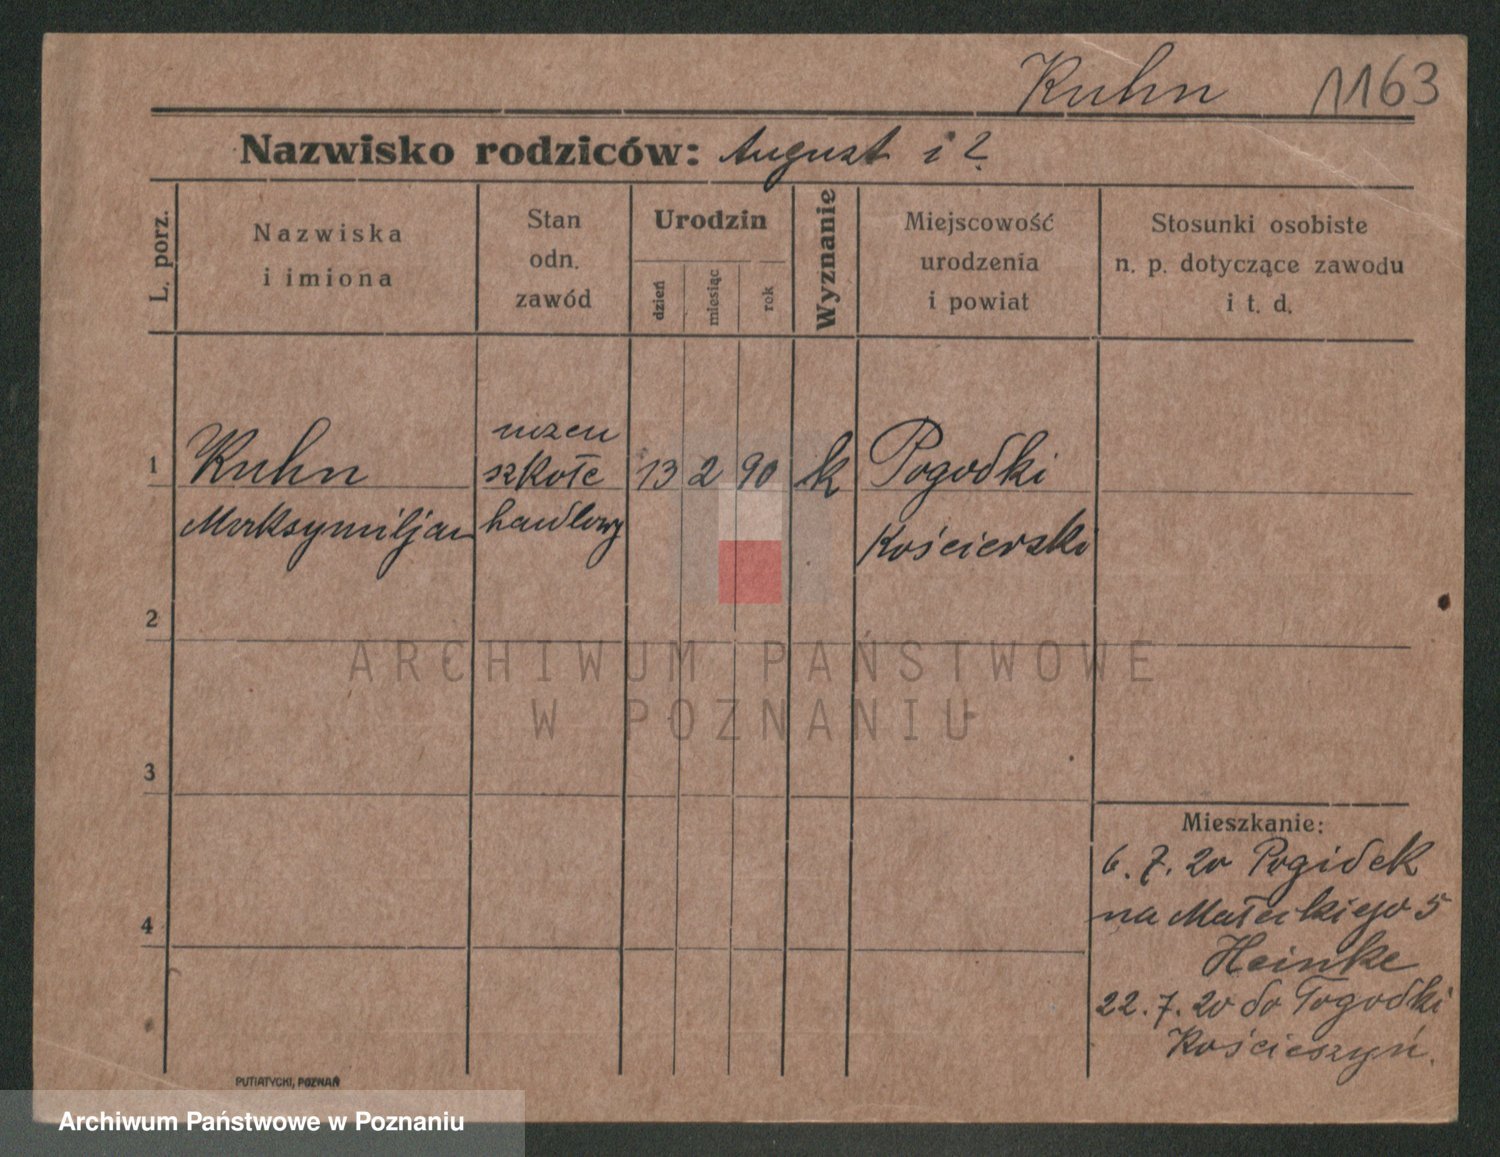 Kuhn 1163
Nazwisko rodziców: August i ?
L. porz.
Nazwiska
i imiona
Stan
odn.
zawód
Urodzin
dzień
miesiąc
rok
Wyznanie
Miejscowość
urodzenia
i powiat
Stosunki osobiste
n. p. dotyczące zawodu
i t. d.
1
Kuhn
Maksymiljan
szkołe
handlowy
13 2 90
k
Pogodki
Kościerski
2
3
4
Mieszkanie:
6. 7. 20 Pogidek
na Małeckiego 5
Heinke
22. 7. 20 do Pogodki
PUTIATYCKI, POZNAŃ
ARCHIWUM PAŃSTWOWE
W POZNANIU
Archiwum Państwowe w Poznaniu